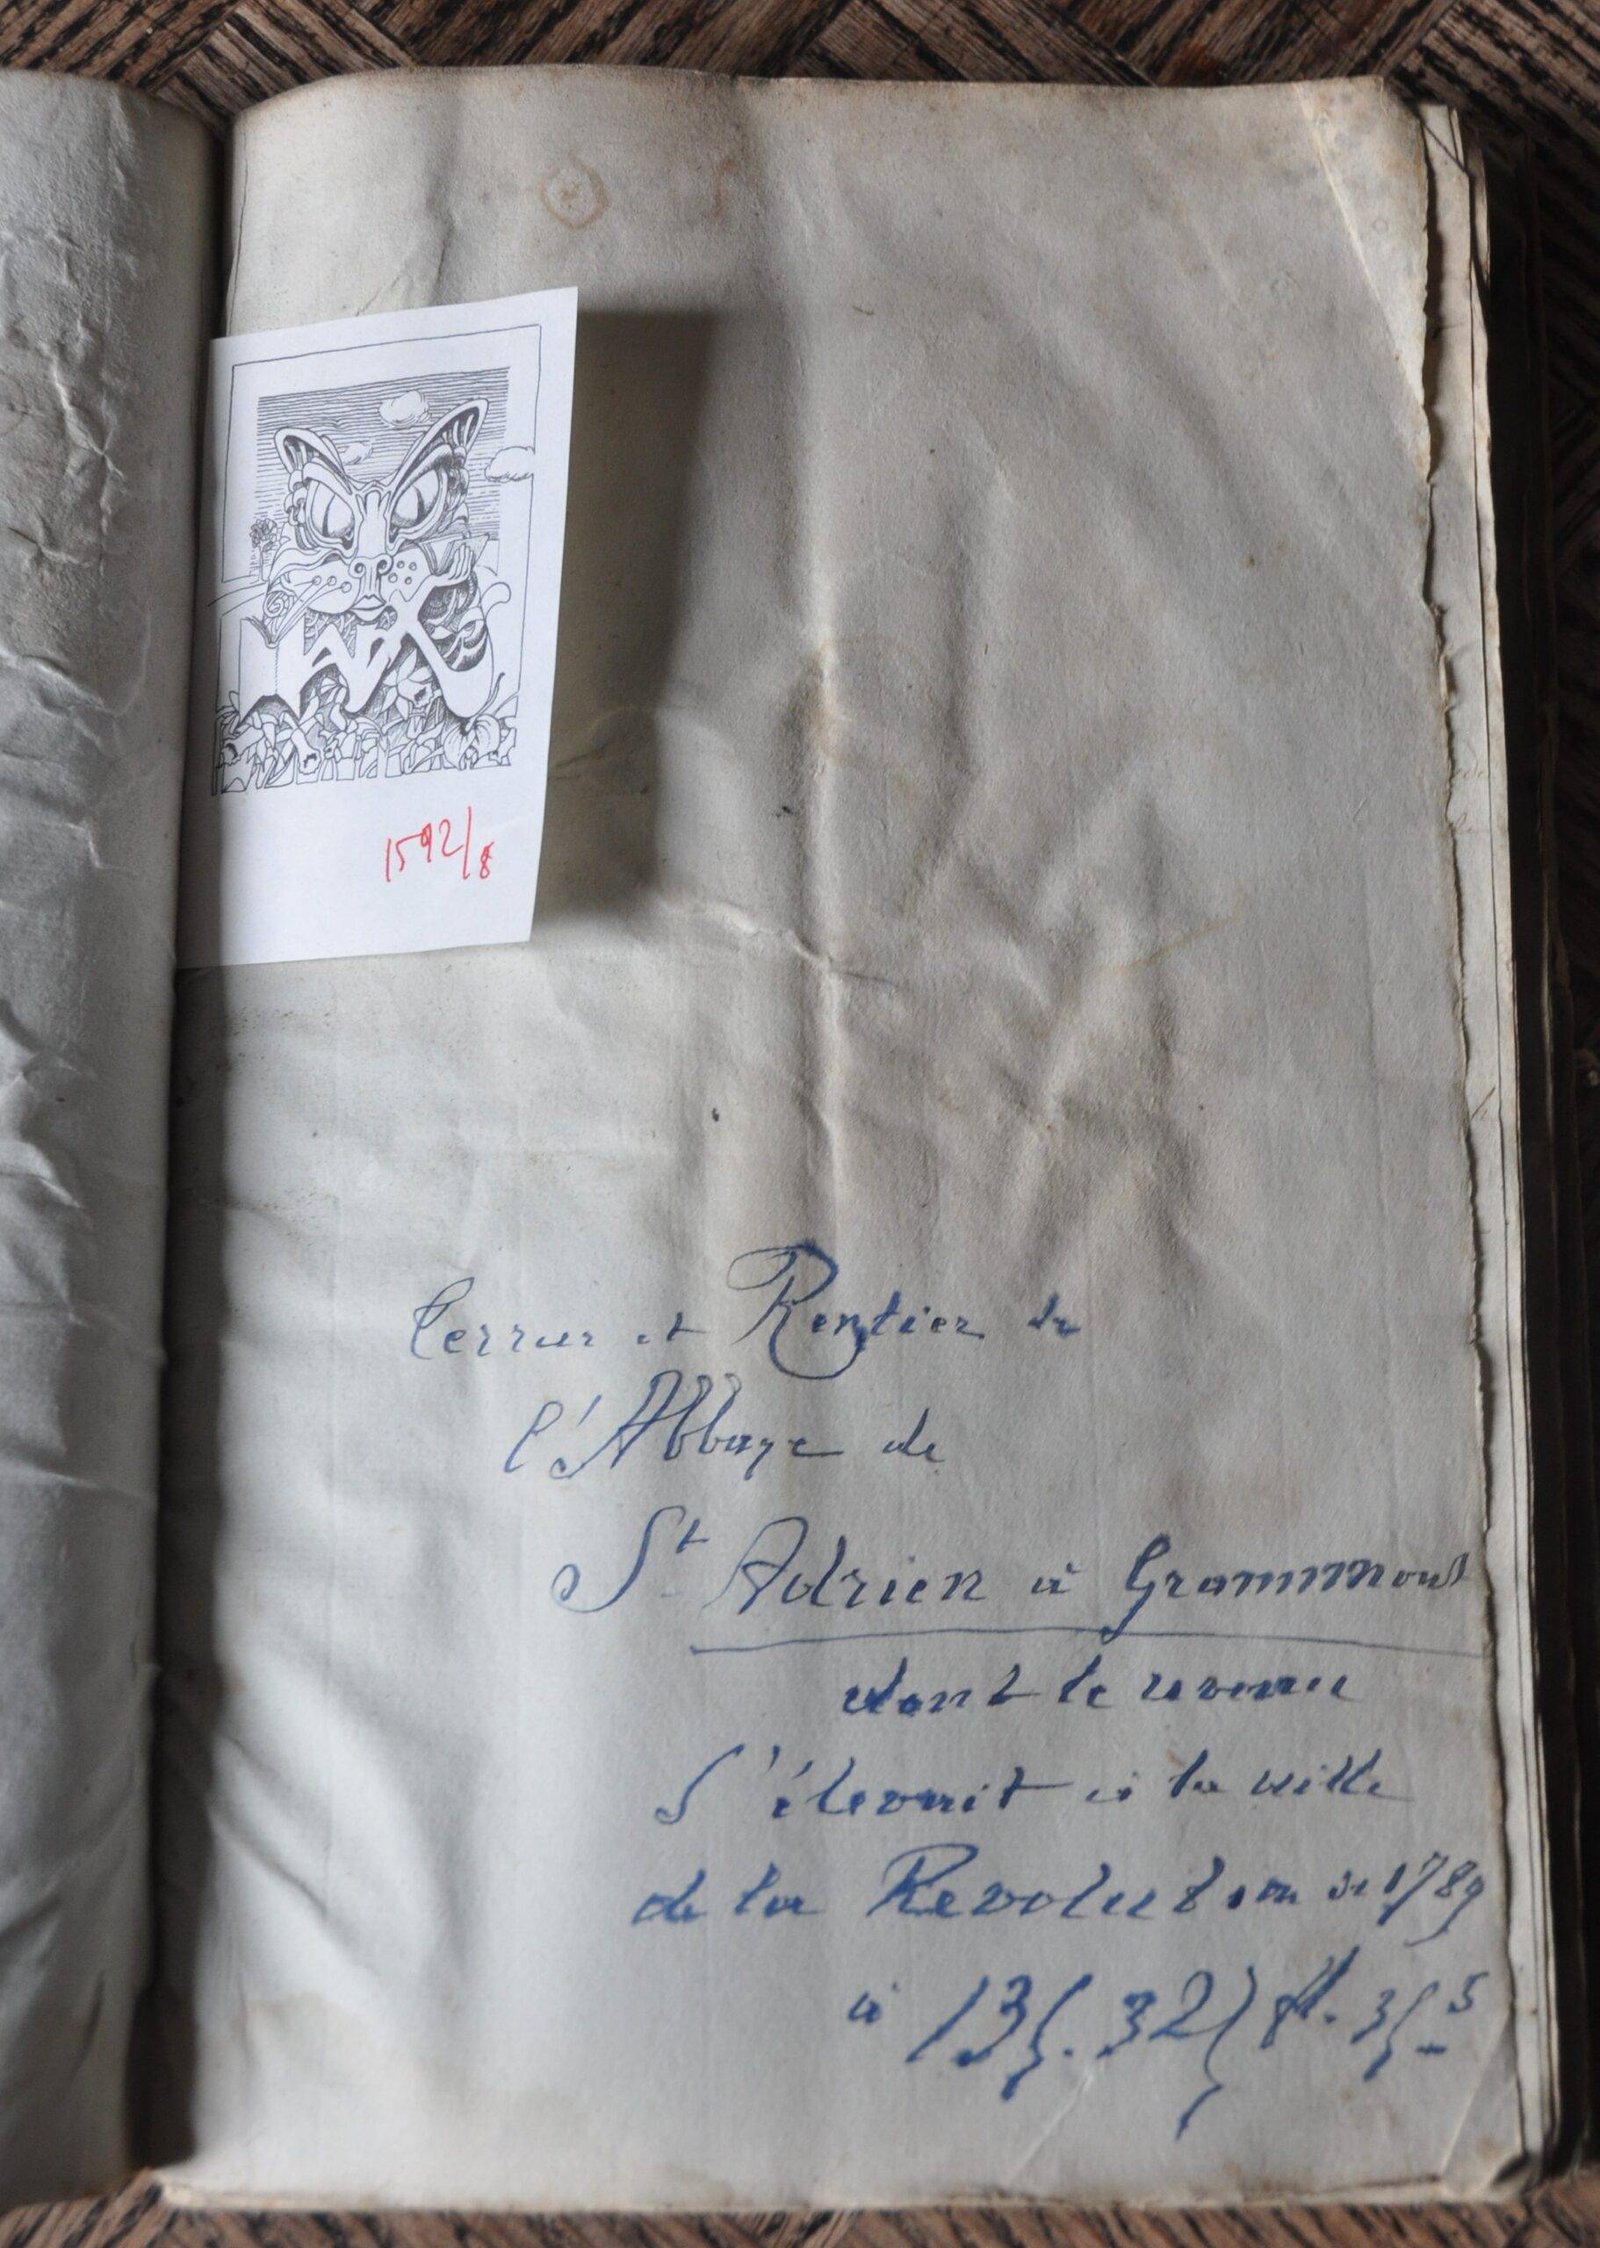 1592/8
Terrier et Rentier de
l'Abbaye de
St Adrien à Grammont
dont le revenu
s'élevait à la veille
de la Revolution de 1789
à fl. 35 s